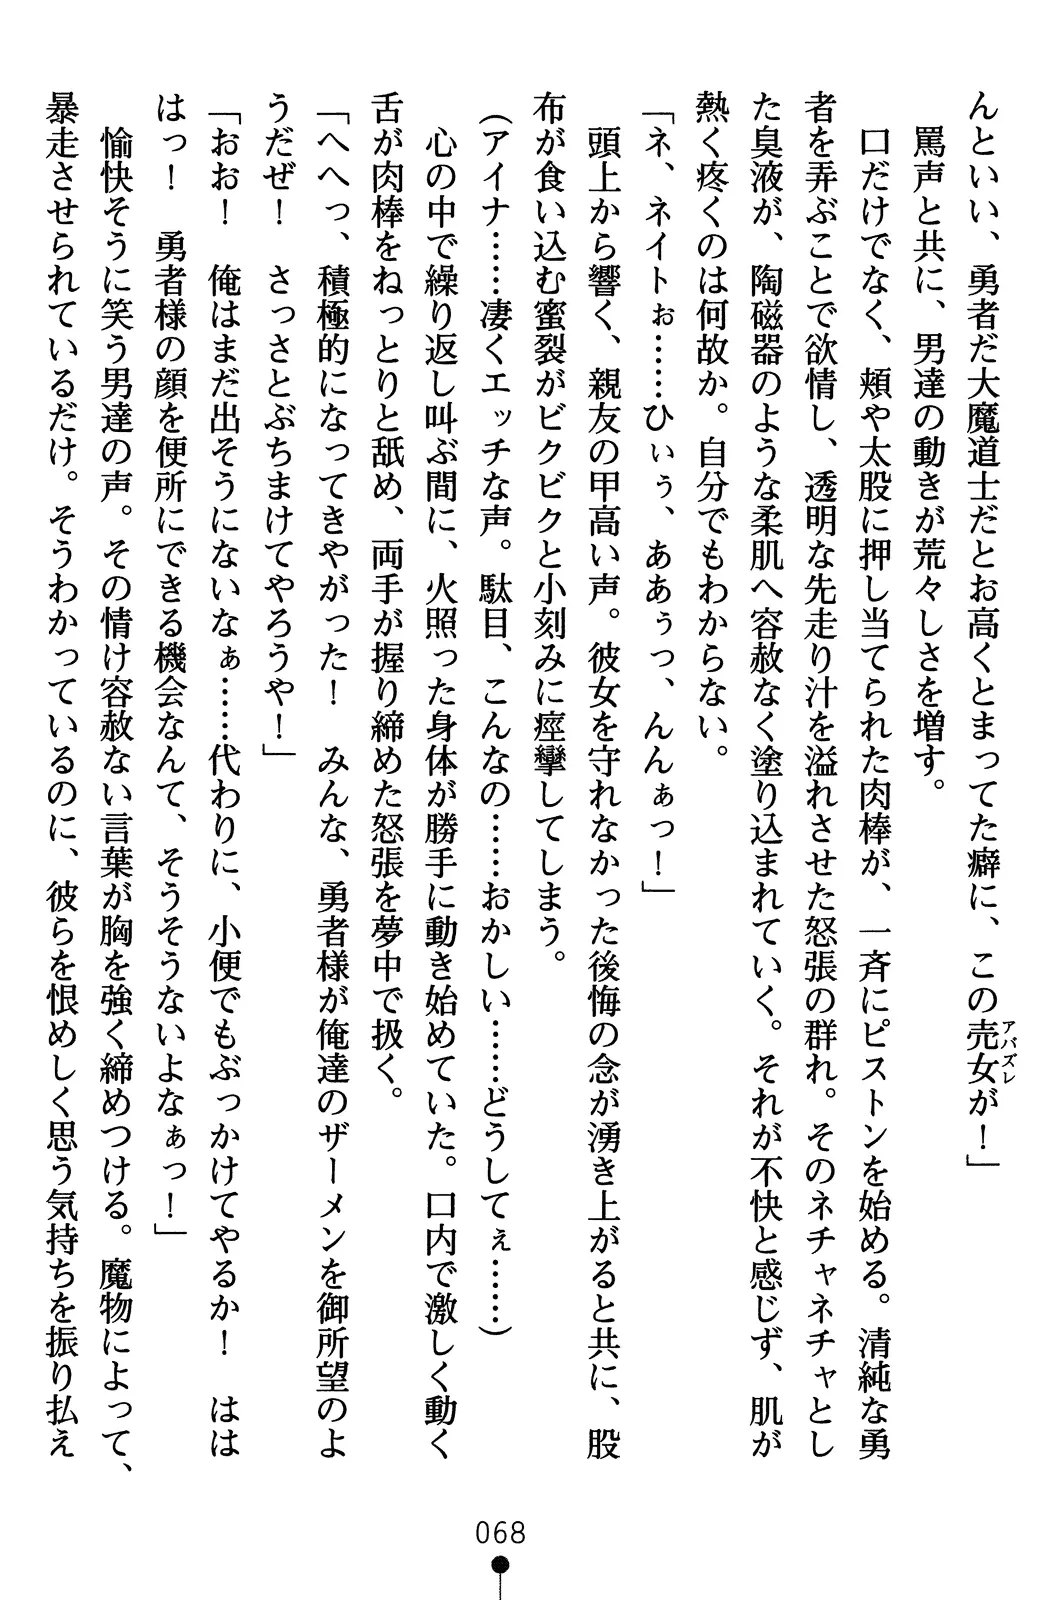 んといい、勇者だ大魔道士だとお高くとまってた癖に、この売女が！」
アバズレ
　罵声と共に、男達の動きが荒々しさを増す。
　口だけでなく、頬や太股に押し当てられた肉棒が、一斉にピストンを始める。清純な勇
者を弄ぶことで欲情し、透明な先走り汁を溢れさせた怒張の群れ。そのネチャネチャとし
た臭液が、陶磁器のような柔肌へ容赦なく塗り込まれていく。それが不快と感じず、肌が
熱く疼くのは何故か。自分でもわからない。
「ネ、ネイトぉ……ひぃぅ、ああぅっ、んんぁっ！」
　頭上から響く、親友の甲高い声。彼女を守れなかった後悔の念が湧き上がると共に、股
布が食い込む蜜裂がビクビクと小刻みに痙攣してしまう。
（アイナ……凄くエッチな声。駄目、こんなの……おかしい……どうしてぇ……）
　心の中で繰り返し叫ぶ間に、火照った身体が勝手に動き始めていた。口内で激しく動く
舌が肉棒をねっとりと舐め、両手が握り締めた怒張を夢中で扱く。
「へへっ、積極的になってきやがった！　みんな、勇者様が俺達のザーメンを御所望のよ
うだぜ！　さっさとぶちまけてやろうや！」
「おお！　俺はまだ出そうにないなぁ……代わりに、小便でもぶっかけてやるか！　はは
はっ！　勇者様の顔を便所にできる機会なんて、そうそうないよなぁっ！」
　愉快そうに笑う男達の声。その情け容赦ない言葉が胸を強く締めつける。魔物によって、
暴走させられているだけ。そうわかっているのに、彼らを恨めしく思う気持ちを振り払え
068